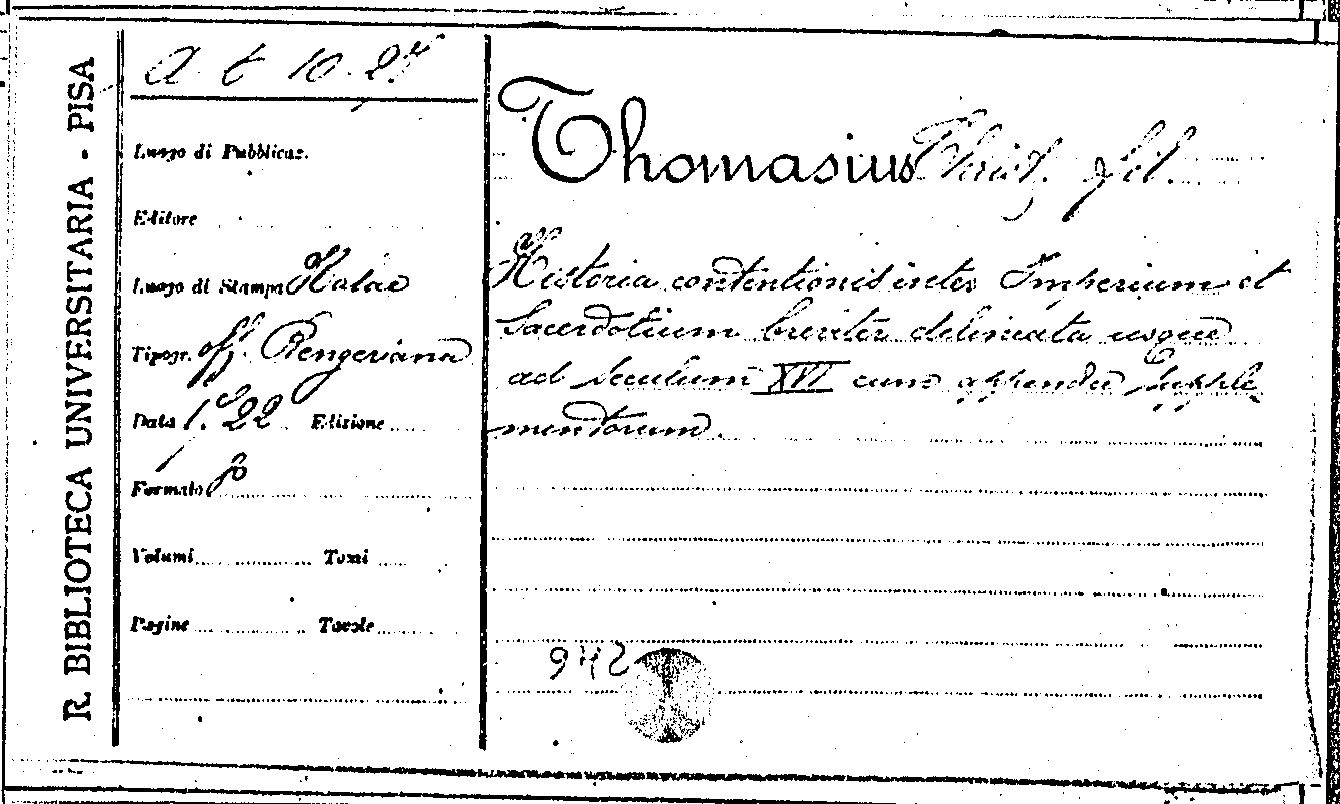 R. BIBLIOTECA UNIVERSITARIA - PISA
a. t 10. 27
Luogo di Pubblicaz.
Editore
Luogo di Stampa Halae
Tipogr. off. Rengeriana
Data 1722 Edizione
Formato 8°
Volumi Tomi
Pagine Tavole
Thomasius Christ. fil.
Historia contentionis inter Imperium et
Sacerdotium breviter delineata usque
ad seculum XVI cum appendice supple
mentorum.
942